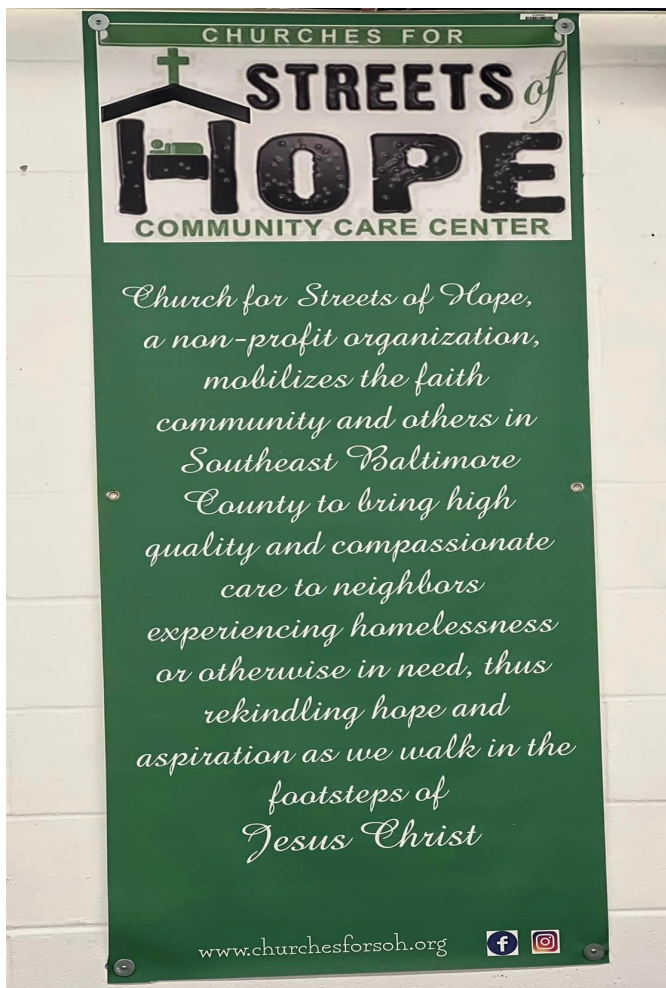 CHURCHES FOR
STREETS of
HOPE
COMMUNITY CARE CENTER
Church for Streets of Hope,
a non-profit organization,
mobilizes the faith
community and others in
Southeast Baltimore
County to bring high
quality and compassionate
care to neighbors
experiencing homelessness
or otherwise in need, thus
rekindling hope and
aspiration as we walk in the
footsteps of
Jesus Christ
www.churchesforsoh.org